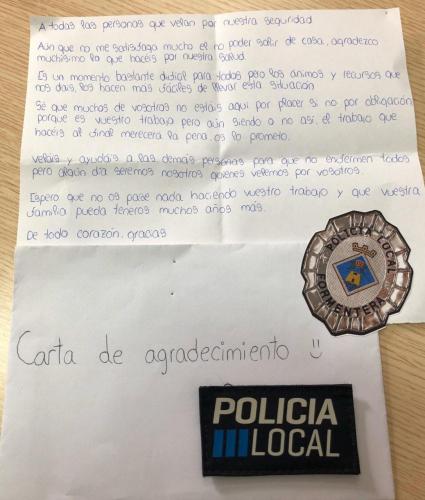 A todas las personas que velan por nuestra seguridad
Aún que no me satisfaga mucho el no poder salir de casa, agradezco
muchísimo lo que hacéis por nuestra salud.
Es un momento bastante dificil para todos pero los ánimos y recursos que
nos dais, los hacen más fáciles de llevar esta situación
Sé que muchos de vosotros no estáis aqui por placer si no por obligación
porque es vuestro trabajo pero aún siendo a no así, el trabajo que
hacéis al final merecerá la pena, os lo prometo.
Veláis y ayudáis a las demás personas para que no enfermen todos
pero algún día seremos nosotros quienes velemos por vosotros.
Espero que no os pase nada haciendo vuestro trabajo y que vuestra
familia pueda teneros muchos años más.
De todo corazón, gracias
POLICIA LOCAL
FORMENTERA
Carta de agradecimiento :)
POLICIA
LOCAL